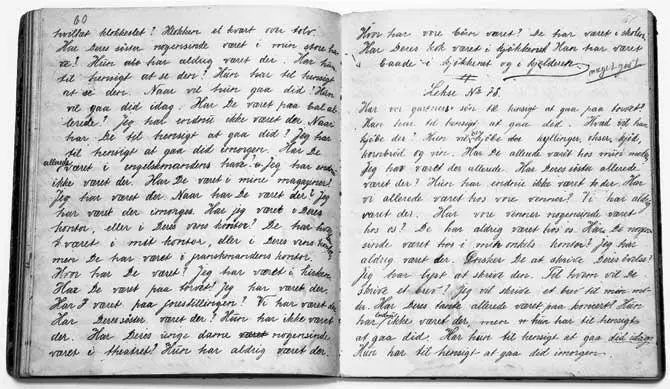 60
hvilket klokkeslet? Klokken et kvart over tolv.
Har Deres søster nogensinde været i min store ha-
ve? Hun har aldrig været der. Har hun
til hensigt at se den? Hun har til hensigt
at se den. Naar vil hun gaa did? Hun
vil gaa did idag. Har De været paa bal al-
lerede? Jeg har endnu ikke været der. Naar
har De til hensigt at gaa did? Jeg har
til hensigt at gaa did imorgen. Har De
allerede været i engelskmandens have? Jeg har endnu
ikke været der. Har De været i mine magaziner?
Jeg har været der. Naar har De været der? Jeg
har været der imorges. Har jeg været i Deres
kontor, eller i Deres vens kontor? De har hver-
været i mit kontor, eller i Deres vens
men De har været i franskmandens kontor.
Hvor har De været? Jeg har været i kirken.
Har De været paa torvet? Jeg har været der.
Har I været paa forestillingen? Vi har været der.
Har Deres søster været der? Hun har ikke været der.
Har Deres unge dame nogensinde
været i theatret? Hun har aldrig været der.
61
Hvor har vore børn været? De har været i skolen.
Har Deres kok været i kjøkkenet? Han har været
baade i kjøkkenet og i kjælderen.
meget godt
Lekse No 38.
Har vor gartners søn til hensigt at gaa paa torvet?
Han har til hensigt at gaa did. Hvad vil han
kjøbe der? Han vil kjøbe der kyllinger, okser, kjød,
kornbrød og vin. Har De allerede været hos min
Jeg har været der allerede. Har Deres søster allerede
været der? Hun har endnu ikke været der. Har
vi allerede været hos vore venner? Vi har aldrig
været der. Har vore venner nogensinde været
hos os? De har aldrig været hos os. Har De nogen-
sinde været hos i min onkels kontor? Jeg har
aldrig været der. Ønsker De at skrive Deres øvelse?
Jeg har lyst at skrive den. Til hvem vil De
skrive et brev? Jeg vil skrive et brev til min mo-
der. Har Deres tante allerede været paa konsert? Hun
har endnu ikke været der, men hun har til hensigt
at gaa did. Har hun til hensigt at gaa did idag?
Hun har til hensigt at gaa did imorgen.